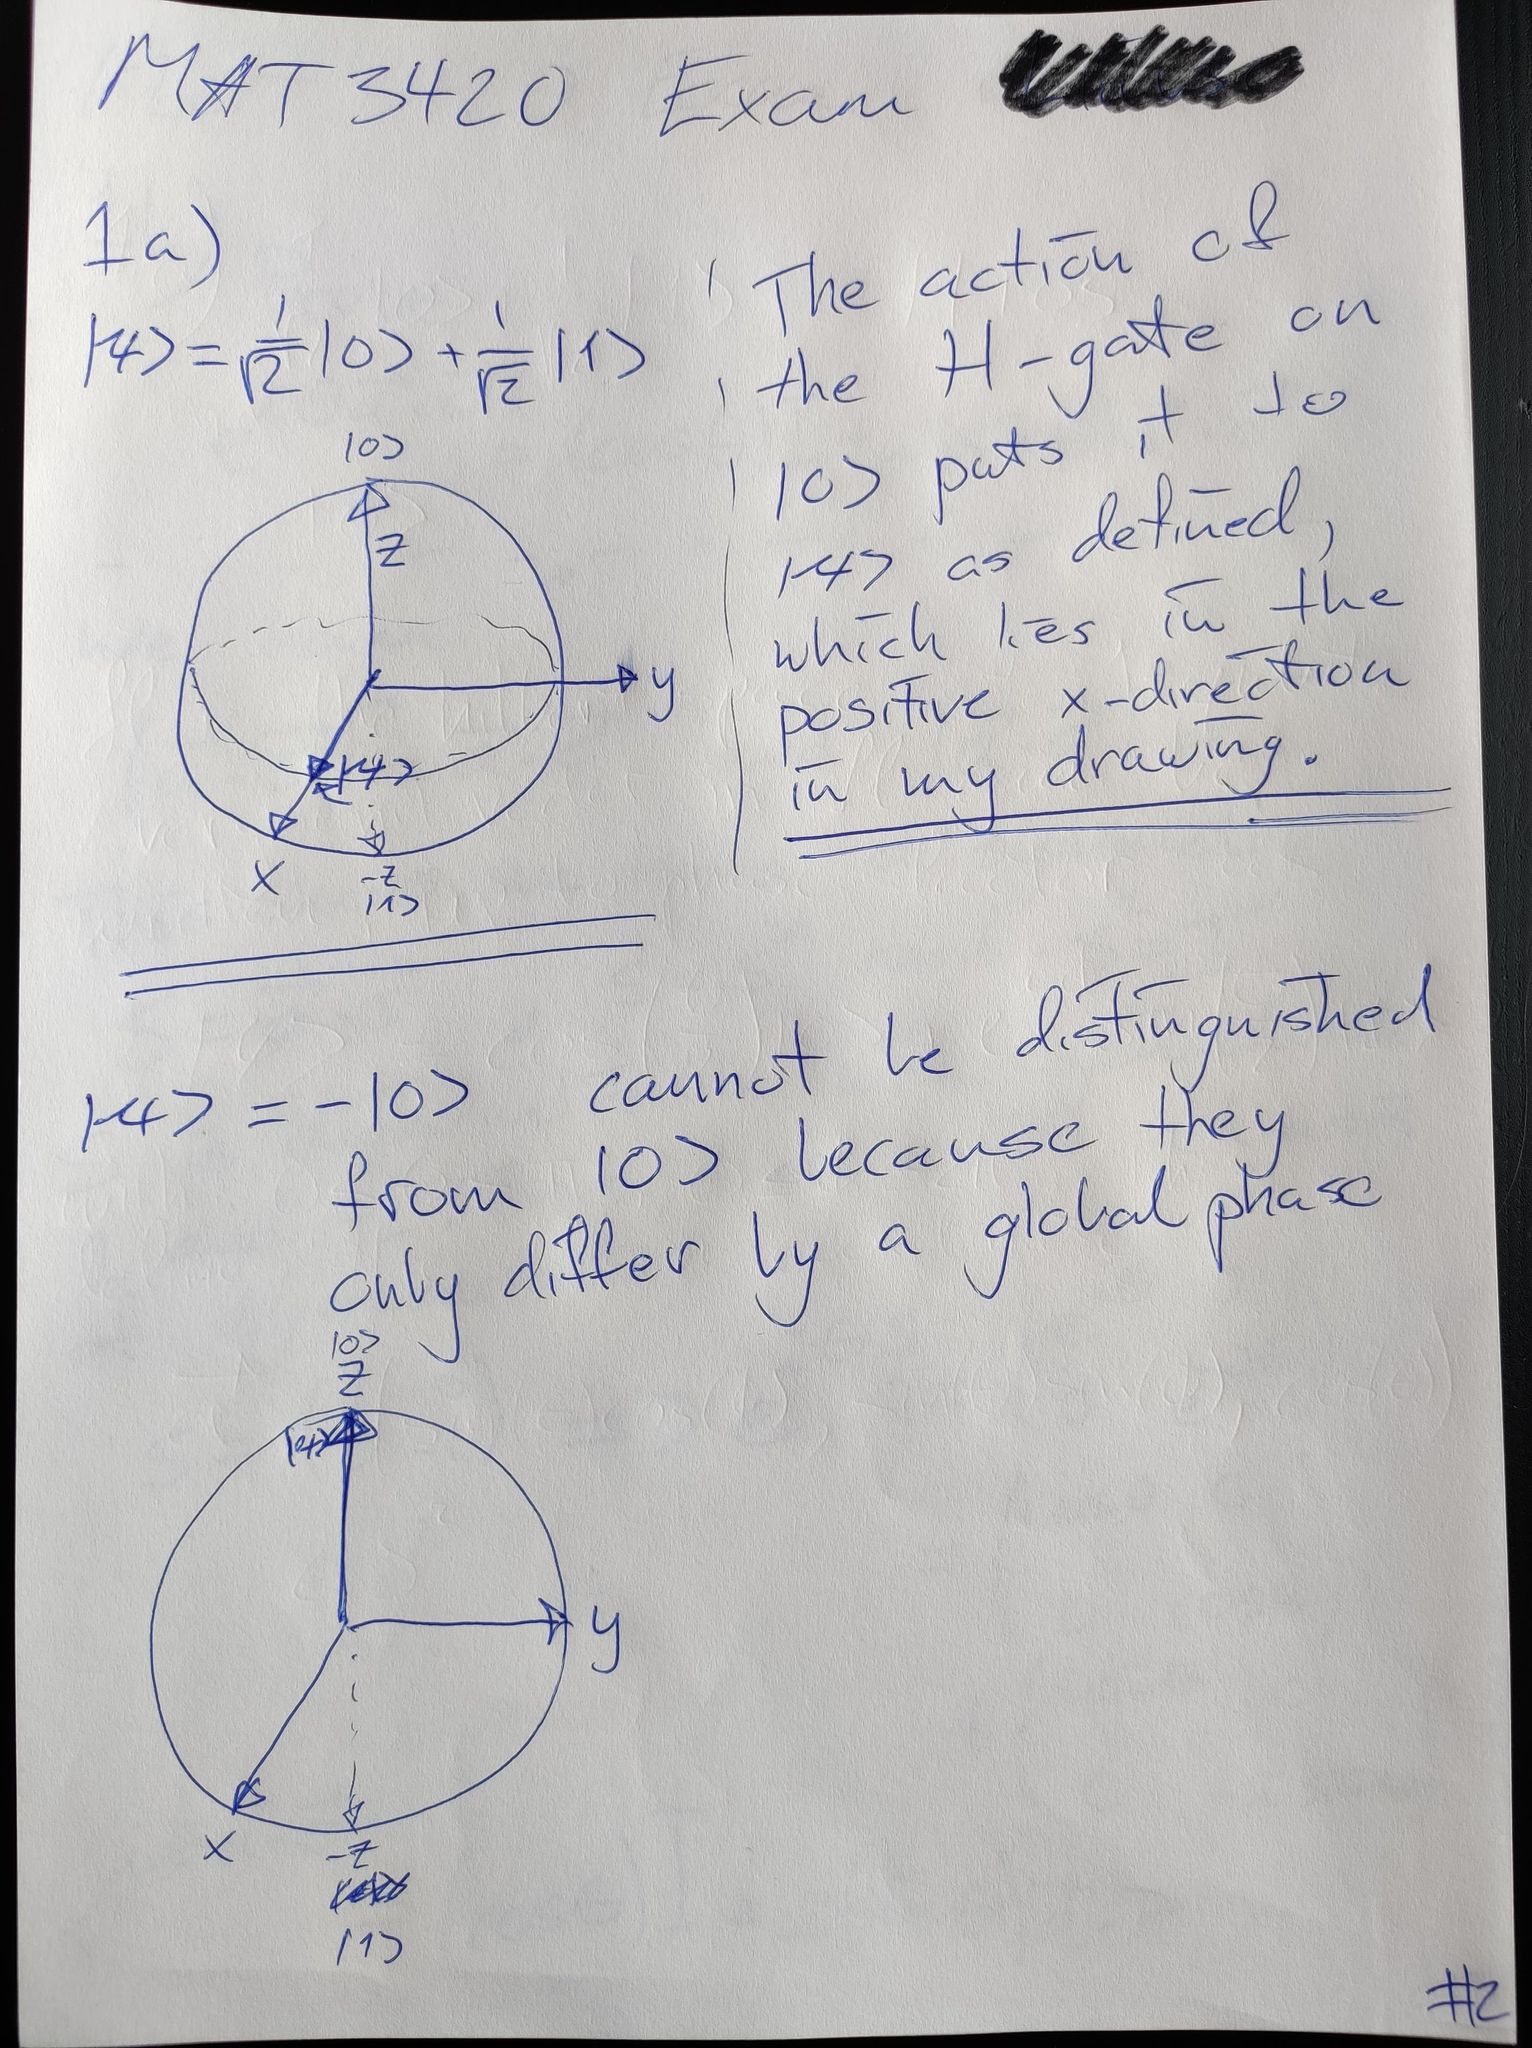 MAT3420 Exam
1a)
|ψ> = 1/√2 |0> + 1/√2 |1>
|0>
z
y
|ψ>
x
-z
|1>
The action of
the H-gate on
|0> puts it to
|ψ> as defined,
which lies in the
positive x-direction
in my drawing.
|ψ> = -|0> cannot be distinguished
from |0> because they
only differ by a global phase
|0>
z
|ψ>
y
x
-z
|1>
#2